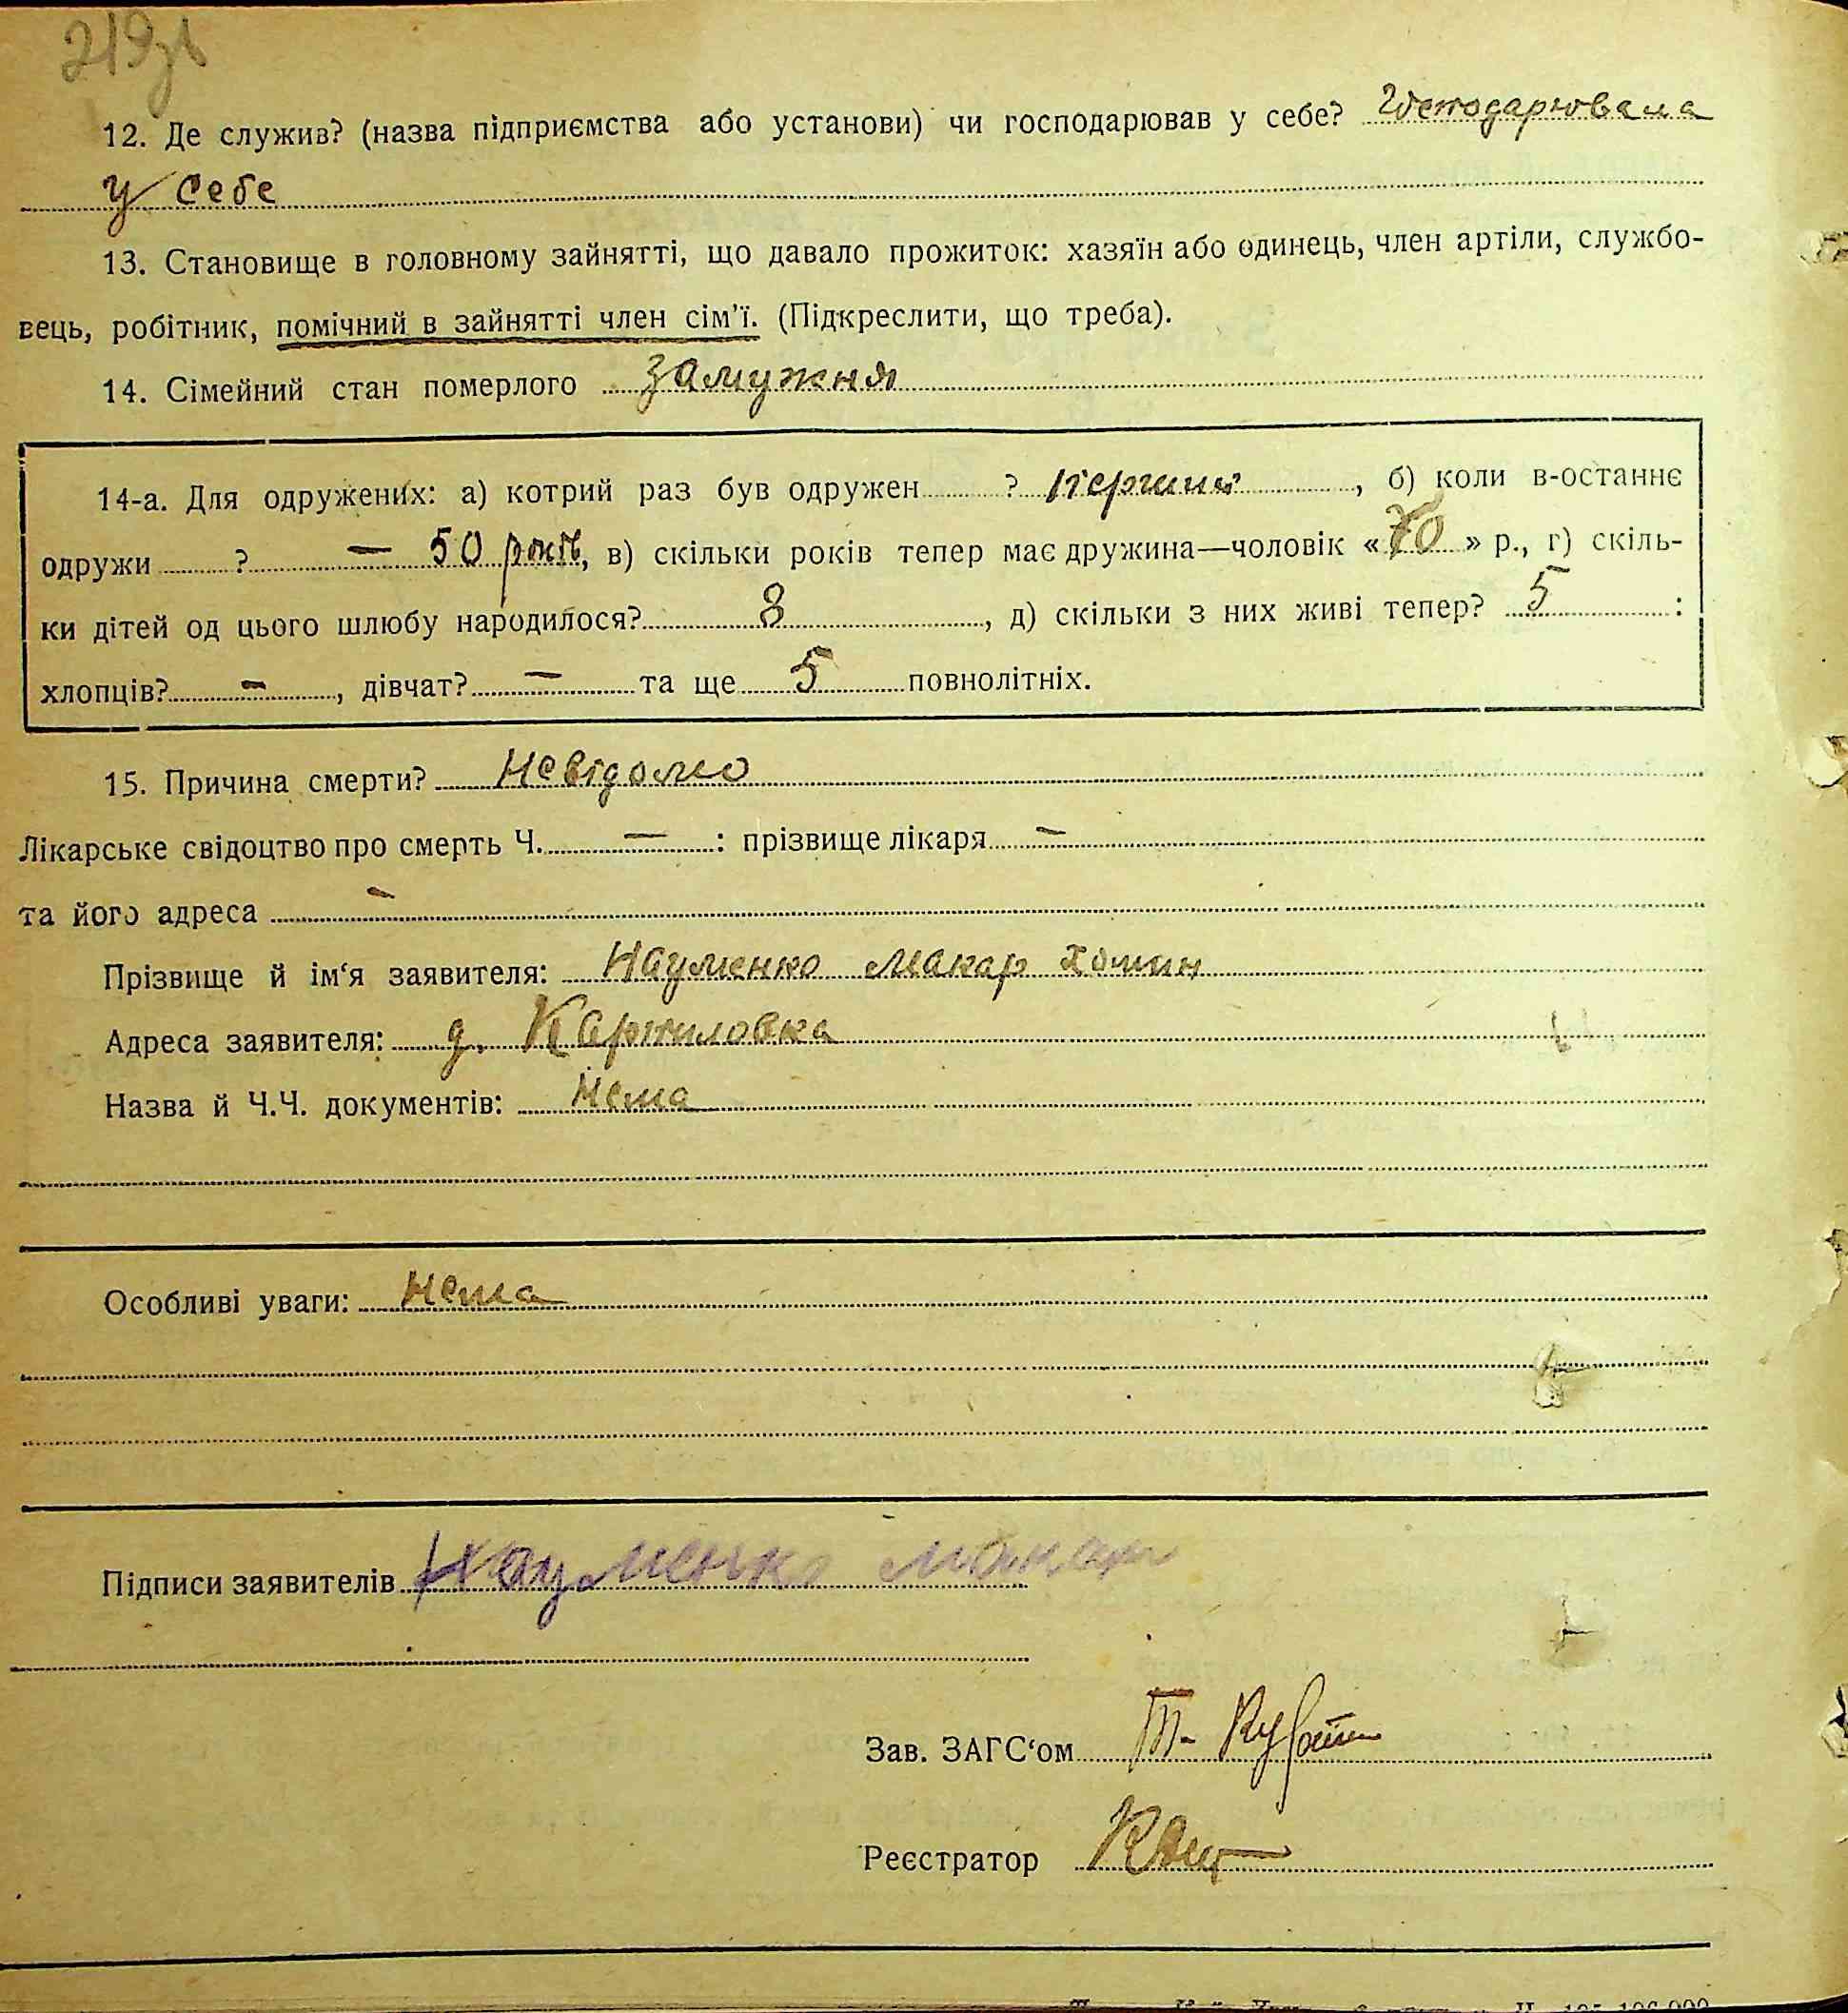 219зв
12. Де служив? (назва підприємства або установи) чи господарював у себе? Господарювала
у себе
13. Становище в головному зайнятті, що давало прожиток: хазяїн або одинець, член артіли, службо-
вець, робітник, помічний в зайнятті член сім'ї. (Підкреслити, що треба).
14. Сімейний стан померлого замужня
14-а. Для одружених: а) котрий раз був одружен ? перший, б) коли в-останнє
одружи ? — 50 років, в) скільки років тепер має дружина—чоловік «70» р., г) скіль-
ки дітей од цього шлюбу народилося? 8, д) скільки з них живі тепер? 5 :
хлопців? -, дівчат? — та ще 5 повнолітніх.
15. Причина смерти? Невідомо
Лікарське свідоцтво про смерть Ч. — : прізвище лікаря —
та його адреса -
Прізвище й ім'я заявителя: Науменко Макар
Адреса заявителя: д. Карпиловка
Назва й Ч.Ч. документів: Нема
Особливі уваги: Нема
Підписи заявителів Науменко Макар
Зав. ЗАГС'ом
Реєстратор